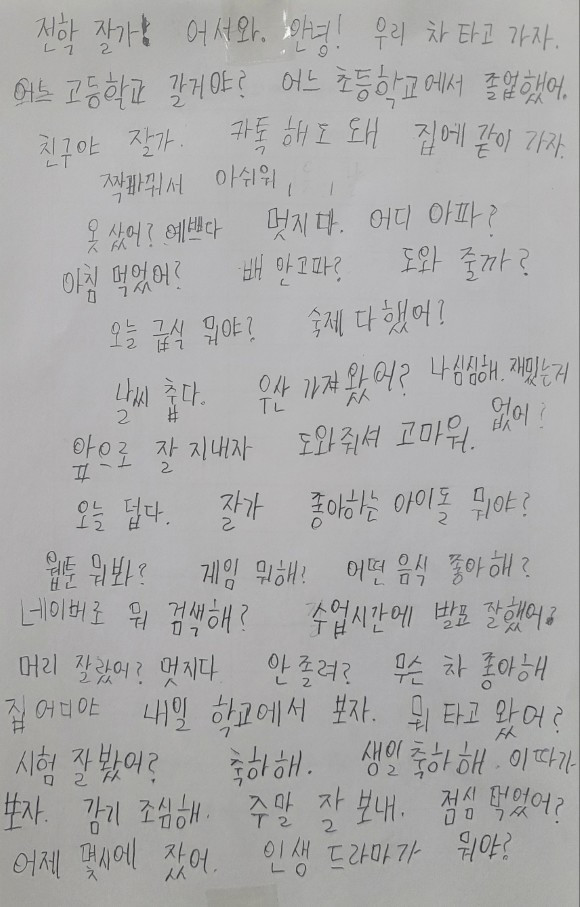 전학 잘가! 어서와. 안녕! 우리 차 타고 가자.
어느 고등학교 갈거야? 어느 초등학교에서 졸업했어.
친구야 잘가. 카톡 해도 돼 집에 같이 가자.
짝바꿔서 아쉬워,
옷 샀어? 예쁘다 멋지다. 어디 아파?
아침 먹었어? 배 안고파? 도와 줄까?
오늘 급식 뭐야? 숙제 다했어?
날씨 춥다. 우산 가져왔어? 나심심해. 재밌는거
없어?
앞으로 잘 지내자 도와줘서 고마워.
오늘 덥다. 잘가 좋아하는 아이돌 뭐야?
웹툰 뭐봐? 게임 뭐해? 어떤 음식 좋아해?
네이버로 뭐 검색해? 수업시간에 발표 잘했어.
머리 잘랐어? 멋지다. 안 졸려? 무슨 차 좋아해
집 어디야 내일 학교에서 보자. 뭐 타고 왔어?
시험 잘 봤어? 축하해. 생일 축하해. 이따가
보자. 감기 조심해. 주말 잘 보내. 점심 먹었어?
어제 몇시에 잤어. 인생 드라마가 뭐야?